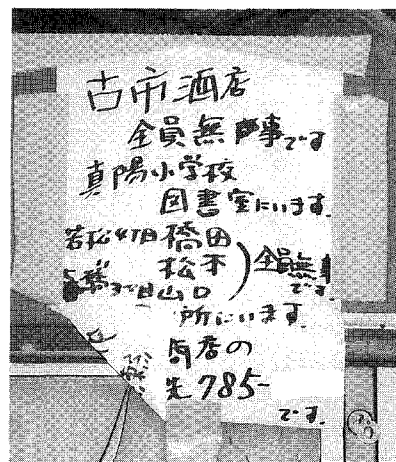 古市酒店
全員無事です
真陽小学校
図書室にいます。
若松4丁目 橋田
松本 ) 全員無事です。
3丁目 山口
所にいます。
店の
先 785-
です。